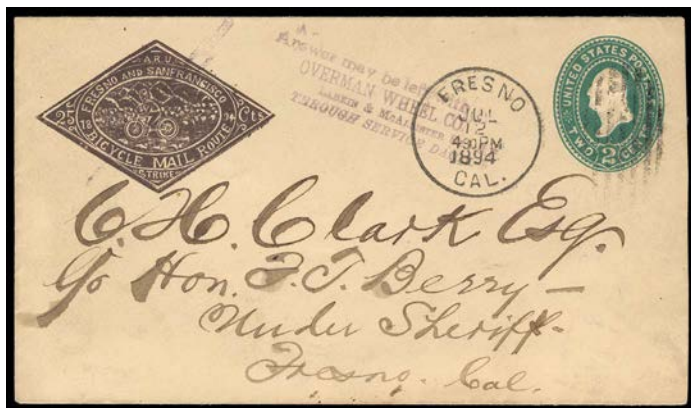 A.R.U.
FRESNO AND SANFRANCISCO
25 Cts
18 94
BICYCLE MAIL ROUTE
STRIKE
Answer may be left with
OVERMAN WHEEL CO.
LARKIN & McALLISTER
THROUGH SERVICE DAILY
FRESNO
JUL
12
430PM
1894
CAL.
UNITED STATES POSTAGE
TWO 2 CENTS
C. H. Clark Esq.
c/o Hon. F. T. Berry —
Under Sheriff-
Fresno. Cal.